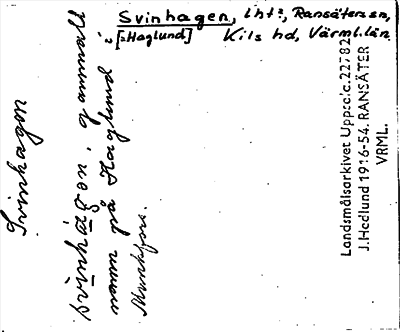 Svinhagen, lht², Ransäters sn,
[=Haglund] Kils hd, Värml. län.
Svinhagon
svinhágon, gammalt
namn på Haglund i
Munkfors.
Landsmålsarkivet Uppsala. 22782
J. Hedlund 1916-54. RANSÄTER
VRML.